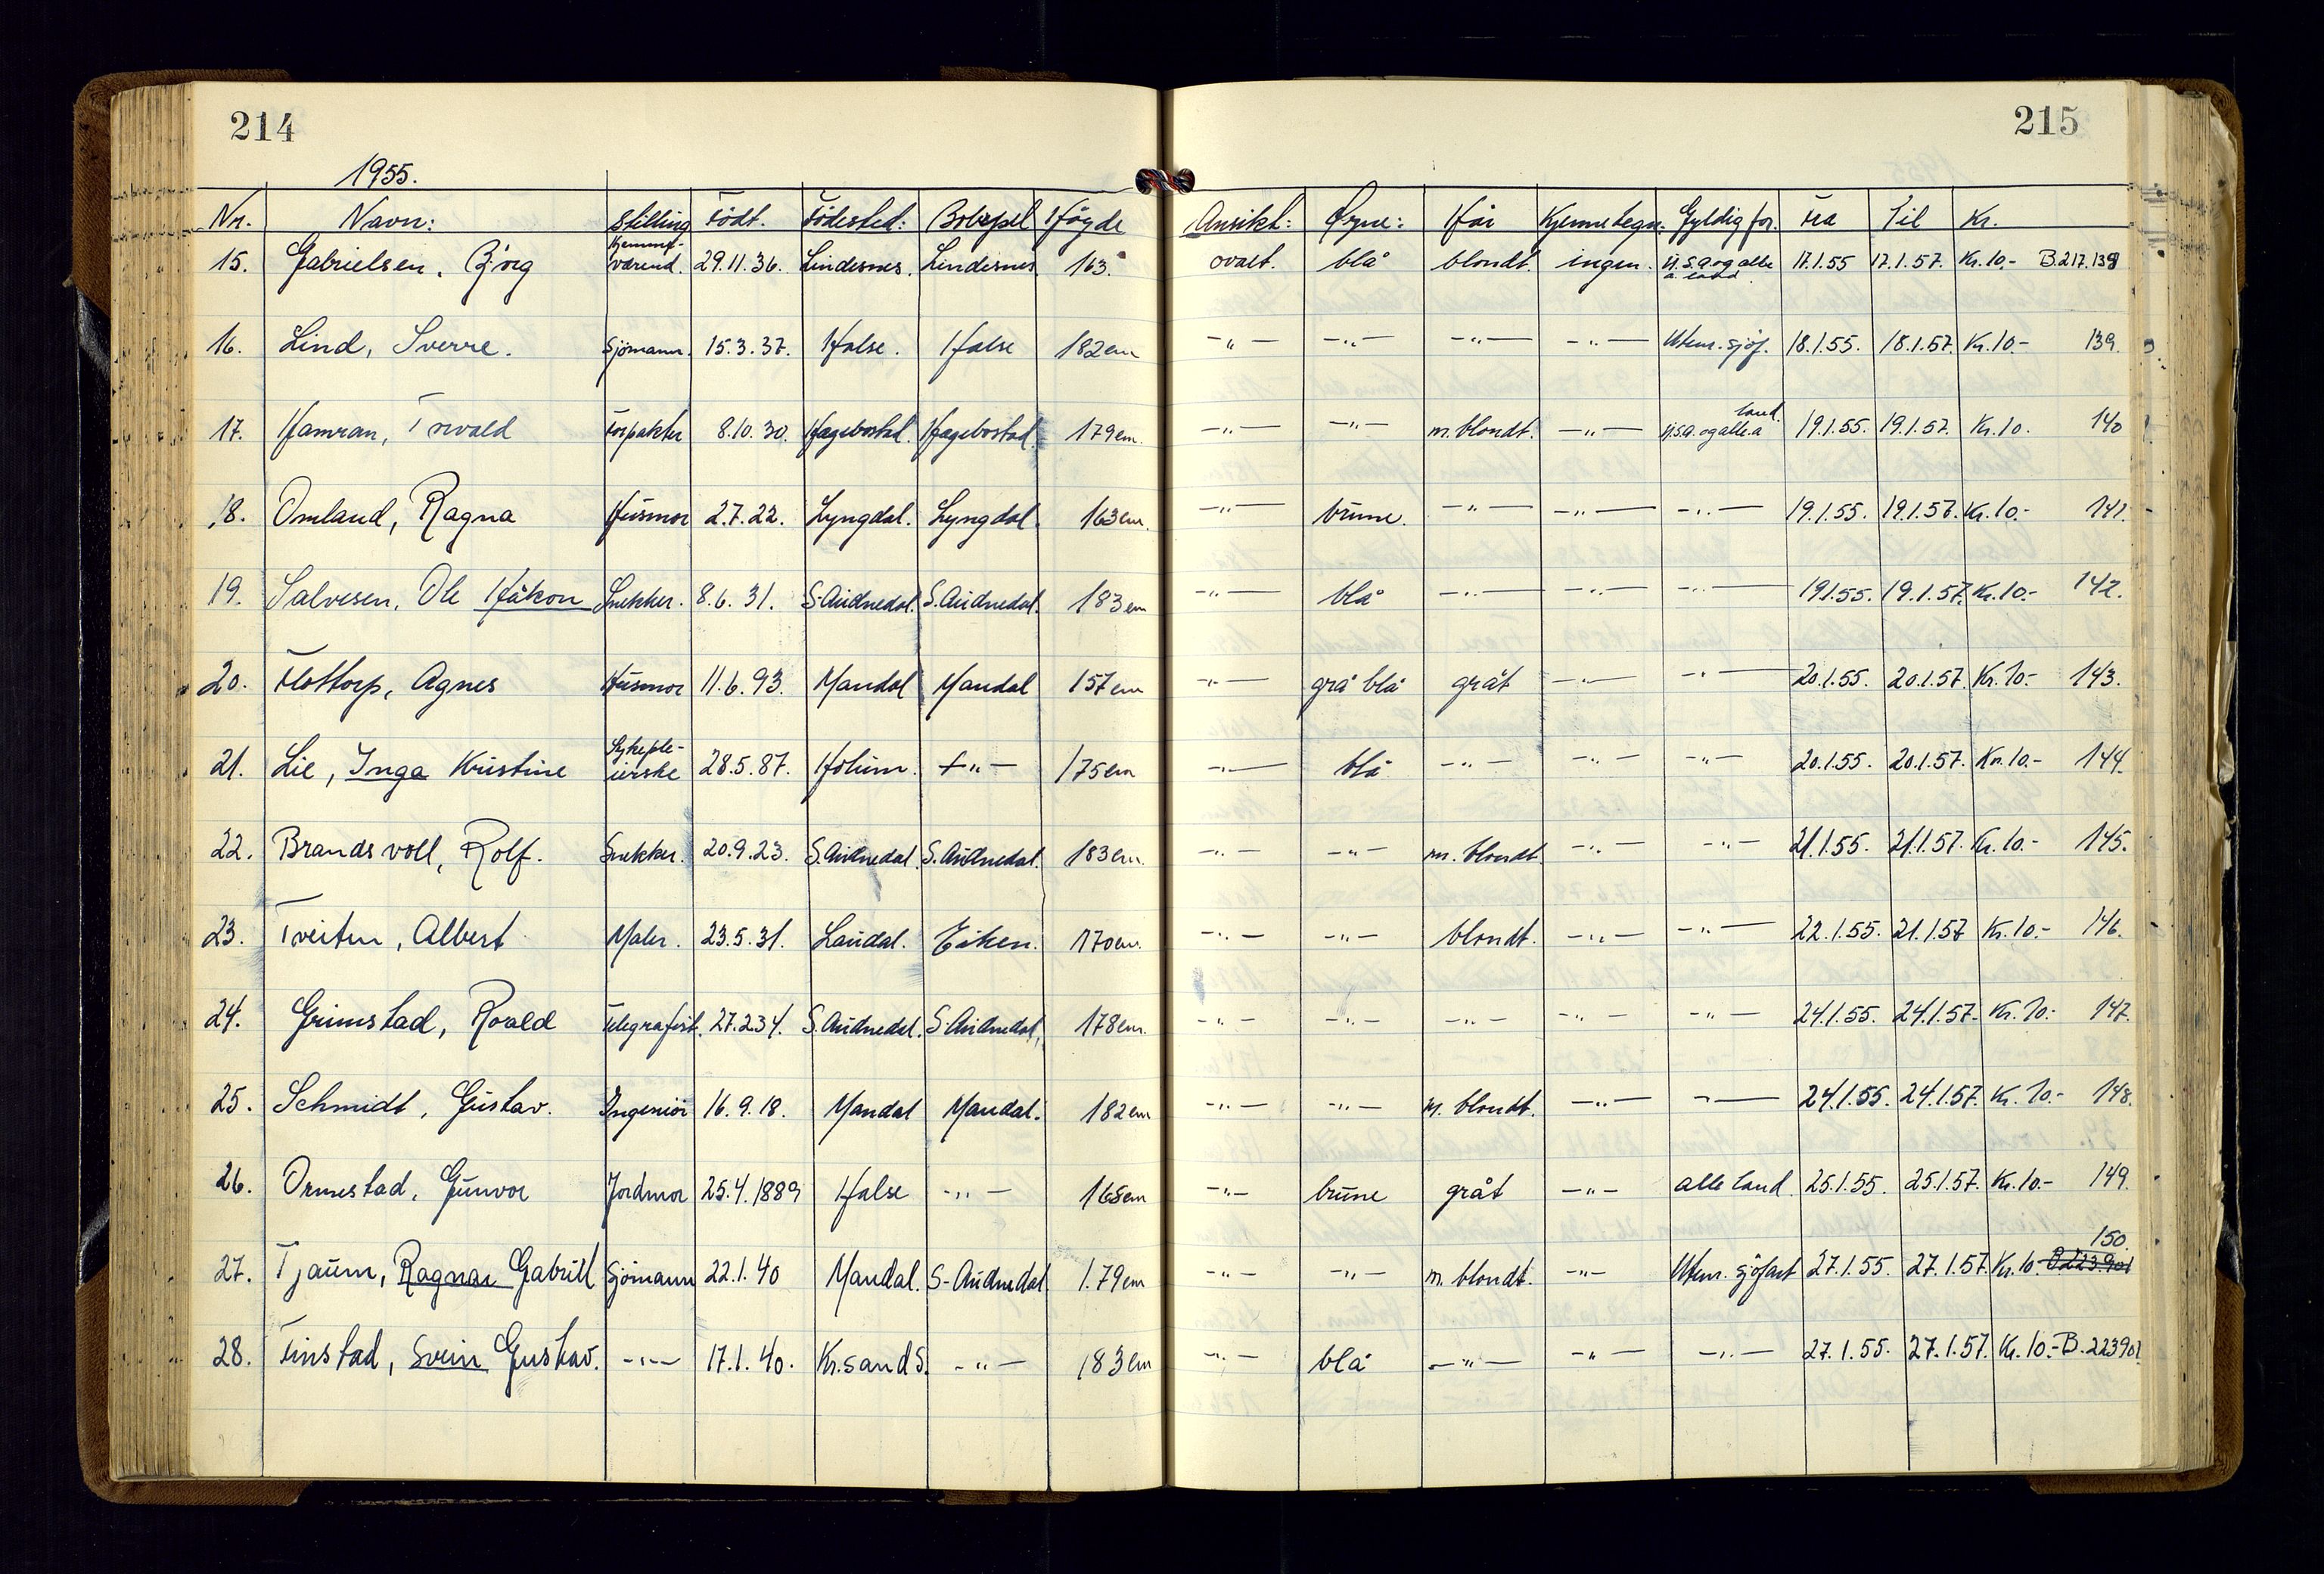 214
215
1955.
Nr. Navn: Stilling Födt. Födested: Bobspel Höyde Ansikt: Øyne: Hår Kjennetegn. Gyldig for. Fra Til Kr.
15. Gabrielsen, Björg Hjemmeværend. 29.11.36. Lindesnes. Lindesnes 163. ovalt. blå blondt. ingen. U.S.A og alle a. land 17.1.55 17.1.57. Kr. 10,- B.217.138
16. Lind, Sverre. Sjömann. 15.3.37. Halse. Halse 182 cm -„- -„- -„- -„- Utenr. sjöf. 18.1.55. 18.1.57. Kr. 10.- 139.
17. Hamran, Torvald Forpakter 8.10.30. Hægebostad. Hægebostad. 179 cm. -„- -„- m. blondt. -„- U.S.A. og alle a land. 19.1.55. 19.1.57. Kr. 10. 140
18. Omland, Ragna Husmor 2.7.22. Lyngdal. Lyngdal. 163 cm. -„- brune. -„- -„- -„- 19.1.55. 19.1.57. Kr. 10.- 141.
19. Salvesen, Ole Håkon Snekker. 8.6.31. S. Audnedal. S. Audnedal. 183 cm -„- blå -„- -„- -„- 19.1.55. 19.1.57. Kr. 10.- 142.
20. Flottorp, Agnes Husmor 11.6.93. Mandal Mandal 157 cm -„- grå blå grått -„- -„- 20.1.55. 20.1.57. Kr. 10.- 143.
21. Lie, Inga Kristine Sykepleierske 28.5.87. Holum. -„- 175 cm -„- blå -„- -„- -„- 20.1.55. 20.1.57. Kr. 10.- 144.
22. Brandsvoll, Rolf. Snekker. 20.9.23. S. Audnedal. S. Audnedal. 183 cm. -„- -„- m. blondt -„- -„- 21.1.55. 21.1.57. Kr. 10.- 145.
23. Tveiten, Albert Maler. 23.5.31. Laudal. Eiken. 170 cm. -„- -„- blondt. -„- -„- 22.1.55. 21.1.57 Kr. 10.- 146.
24. Grimstad, Roald Telegrafist. 27.2.34. S. Audnedal. S. Audnedal. 178 cm. -„- -„- -„- -„- -„- 24.1.55. 24.1.57. Kr. 10.- 147.
25. Schmidt, Gustav. Ingeniör 16.9.18. Mandal Mandal. 182 cm -„- -„- m. blondt. -„- -„- 24.1.55. 24.1.57. Kr. 10.- 148.
26. Ormestad, Gunvor Jordmor 25.4.1889 Halse -„- 165 cm -„- brune grått -„- alle land. 25.1.55. 25.1.57. Kr. 10.- 149.
27. Tjaum, Ragnar Gabriel Sjömann 22.1.40 Mandal. S-Audnedal 1.79 cm -„- -„- m. blondt. -„- Utenr. sjöfart 27.1.55. 27.1.57. Kr. 10. B.223.901 150.
28. Finstad, Svein Gustav. -„- 17.1.40. Kr.sand S. -„- 183 cm -„- blå -„- -„- -„- 27.1.55. 27.1.57. Kr. 10.- B.223901